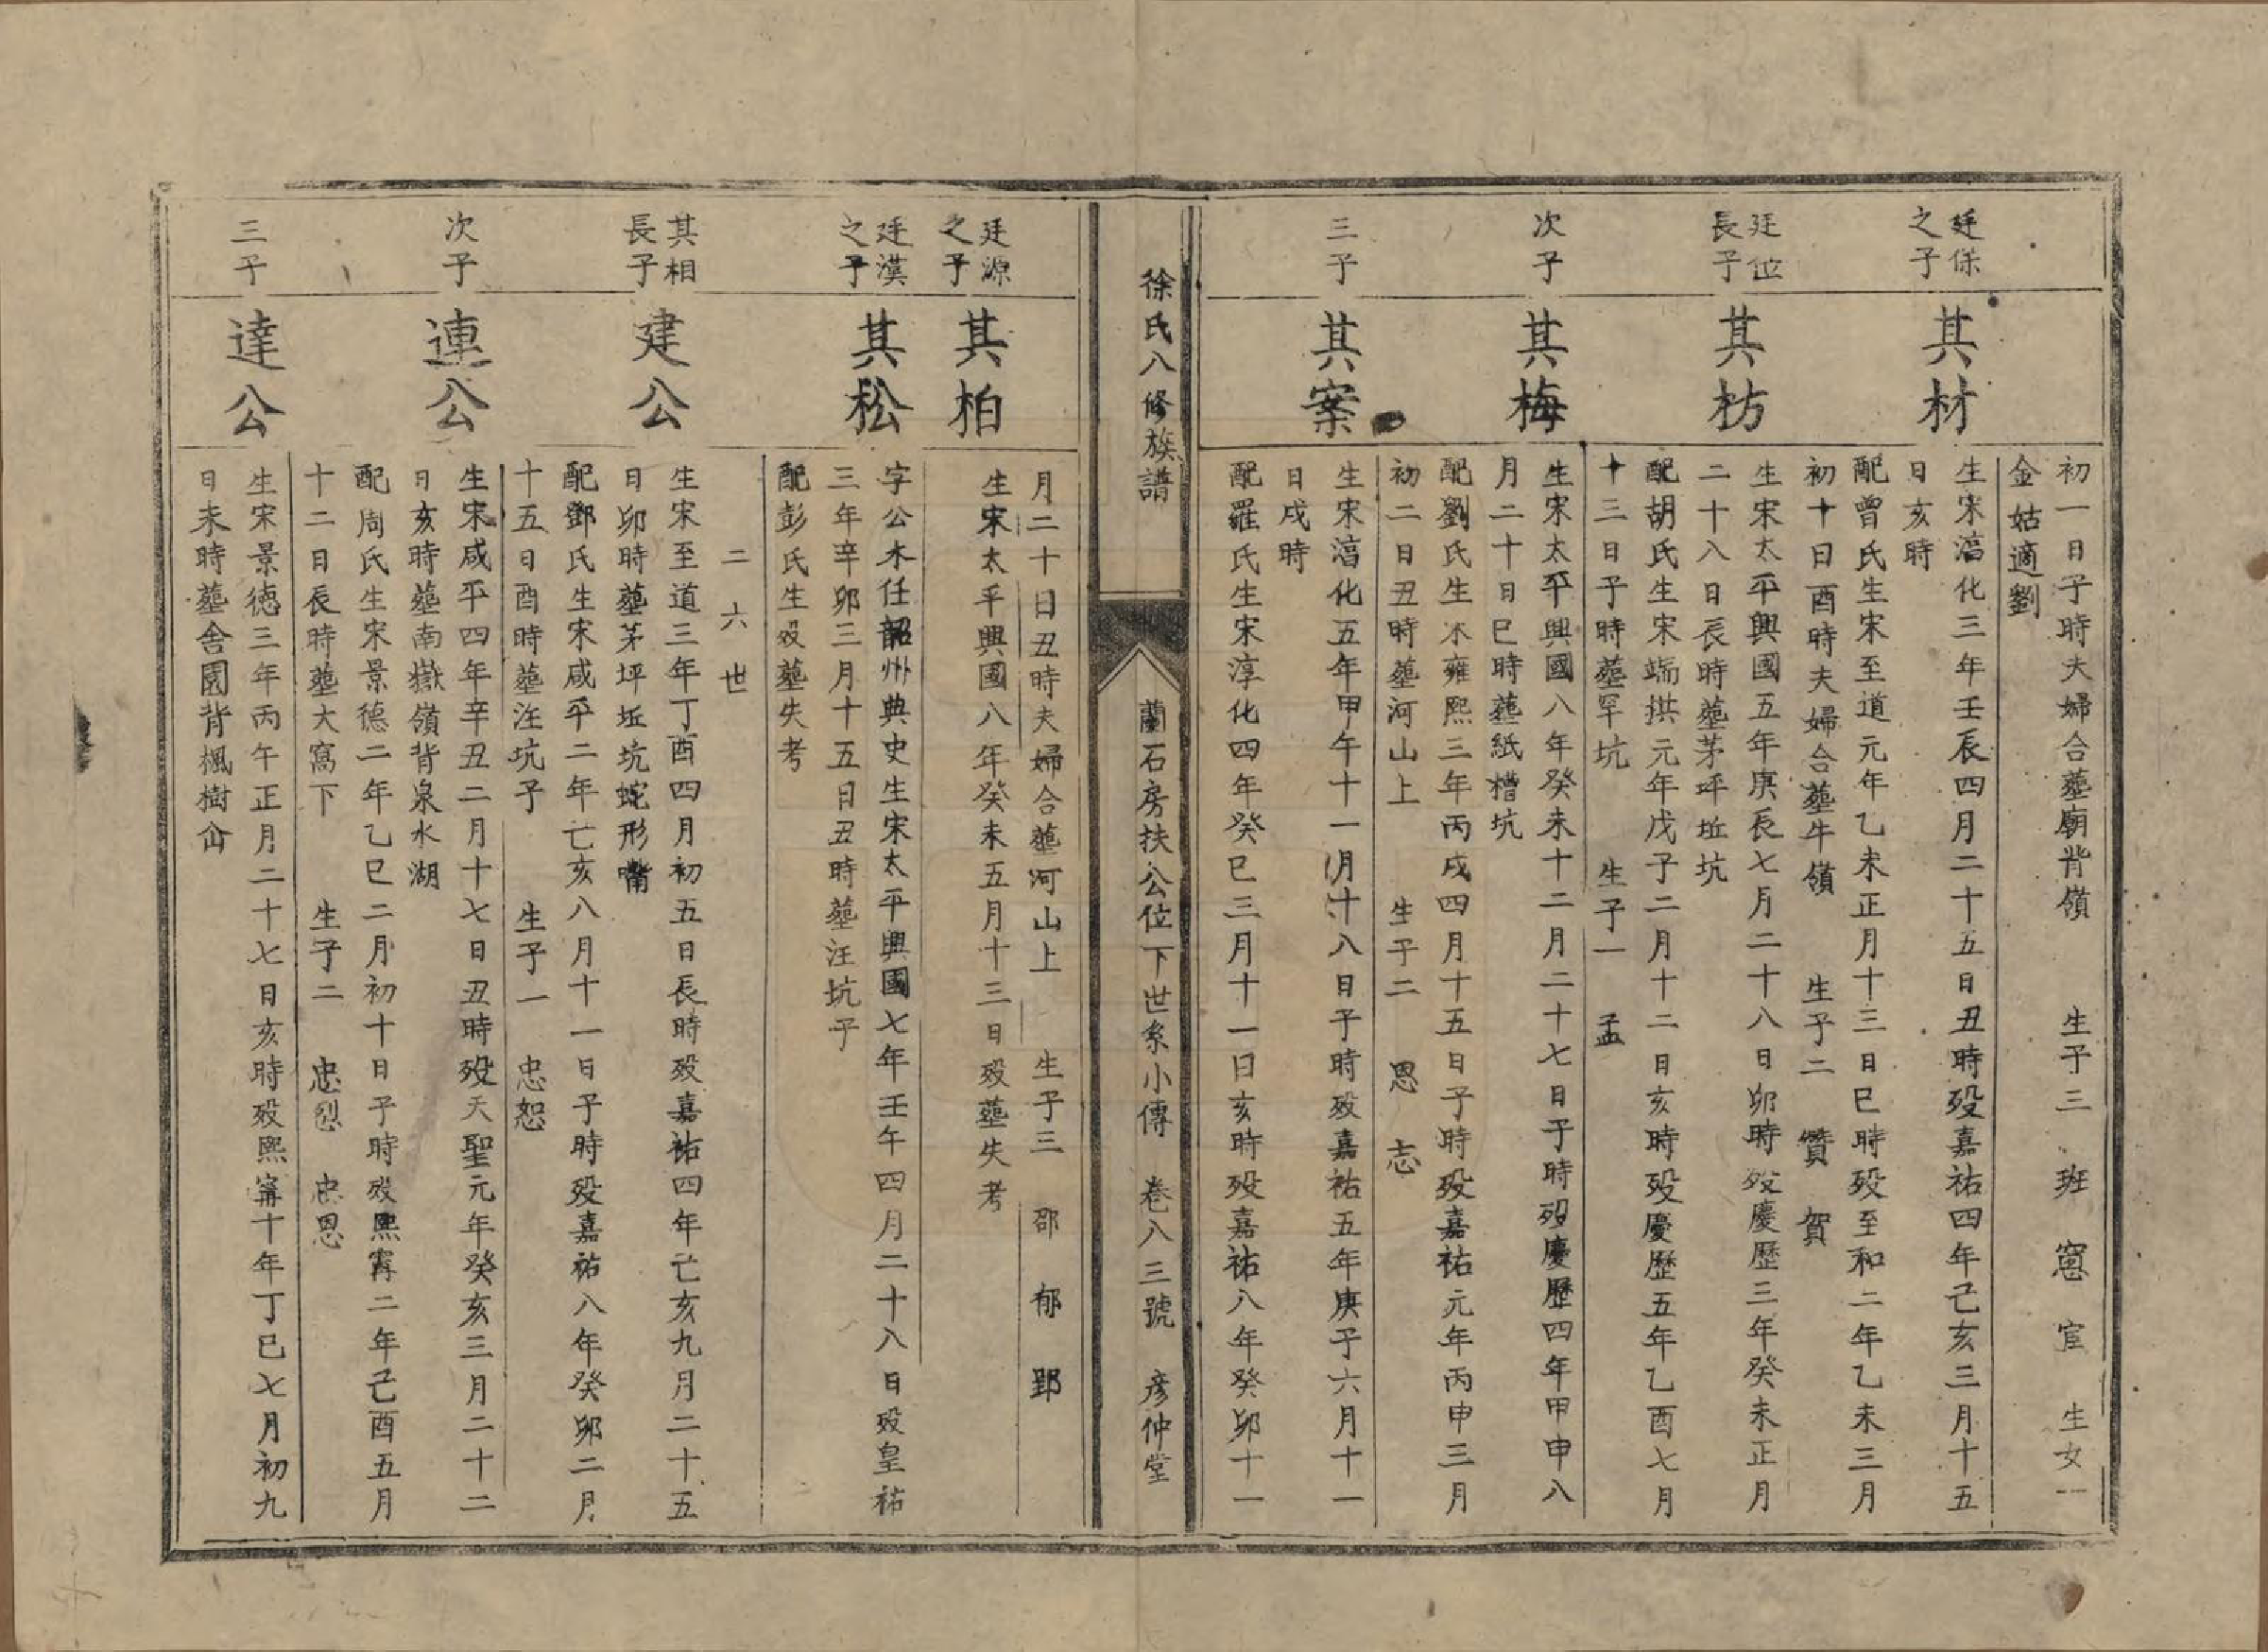 初一日子時夫婦合塟廟背嶺 生子三 班 寬 宦 生女一
金姑適劉
廷保
之子
其材
生宋淳化三年壬辰四月二十五日丑時歿嘉祐四年己亥三月十五
日亥時
配曾氏生宋至道元年乙未正月十三日巳時歿至和二年乙未三月
初十日酉時夫婦合塟牛嶺 生子二 贊 賀
廷位
長子
其枋
生宋太平興國五年庚辰七月二十八日卯時歿慶歷三年癸未正月
二十八日辰時塟茅坪坵坑
配胡氏生宋端拱元年戊子二月十二日亥時歿慶歷五年乙酉七月
十三日子時塟罕坑 生子一 孟
次子
其梅
生宋太平興國八年癸未十二月二十七日子時歿慶歷四年甲申八
月二十日巳時塟紙槽坑
配劉氏生宋雍熙三年丙戌四月十五日子時歿嘉祐元年丙申三月
初二日丑時塟河山上 生子二 恩 志
三子
其案
生宋淳化五年甲午十一月十八日子時歿嘉祐五年庚子六月十一
日戌時
配羅氏生宋淳化四年癸巳三月十一日亥時歿嘉祐八年癸卯十一
徐氏八修族譜
蘭石房扶公位下世系小傳 卷八三號 彥仲堂
月二十日丑時夫婦合塟河山上 生子三 邵 郁 郢
廷源
之子
其柏
生宋太平興國八年癸未五月十三日歿塟失考
廷漢
之子
其松
字公木任韶州典史生宋太平興國七年壬午四月二十八日歿皇祐
三年辛卯三月十五日丑時塟汪坑子
配彭氏生歿塟失考
二六世
其相
長子
建公
生宋至道三年丁酉四月初五日長時歿嘉祐四年亡亥九月二十五
日卯時塟茅坪坵坑蛇形嘴
配鄧氏生宋咸平二年亡亥八月十一日子時歿嘉祐八年癸卯二月
十五日酉時塟汪坑子 生子一 忠恕
次子
連公
生宋咸平四年辛丑二月十七日丑時歿天聖元年癸亥三月二十二
日亥時塟南嶽嶺背泉水湖
配周氏生宋景德二年乙巳二月初十日子時歿熙寧二年己酉五月
十二日辰時塟大窩下 生子二 忠烈 忠恩
三子
達公
生宋景德三年丙午正月二十七日亥時歿熙寧十年丁巳七月初九
日未時塟舍園背楓樹㒰